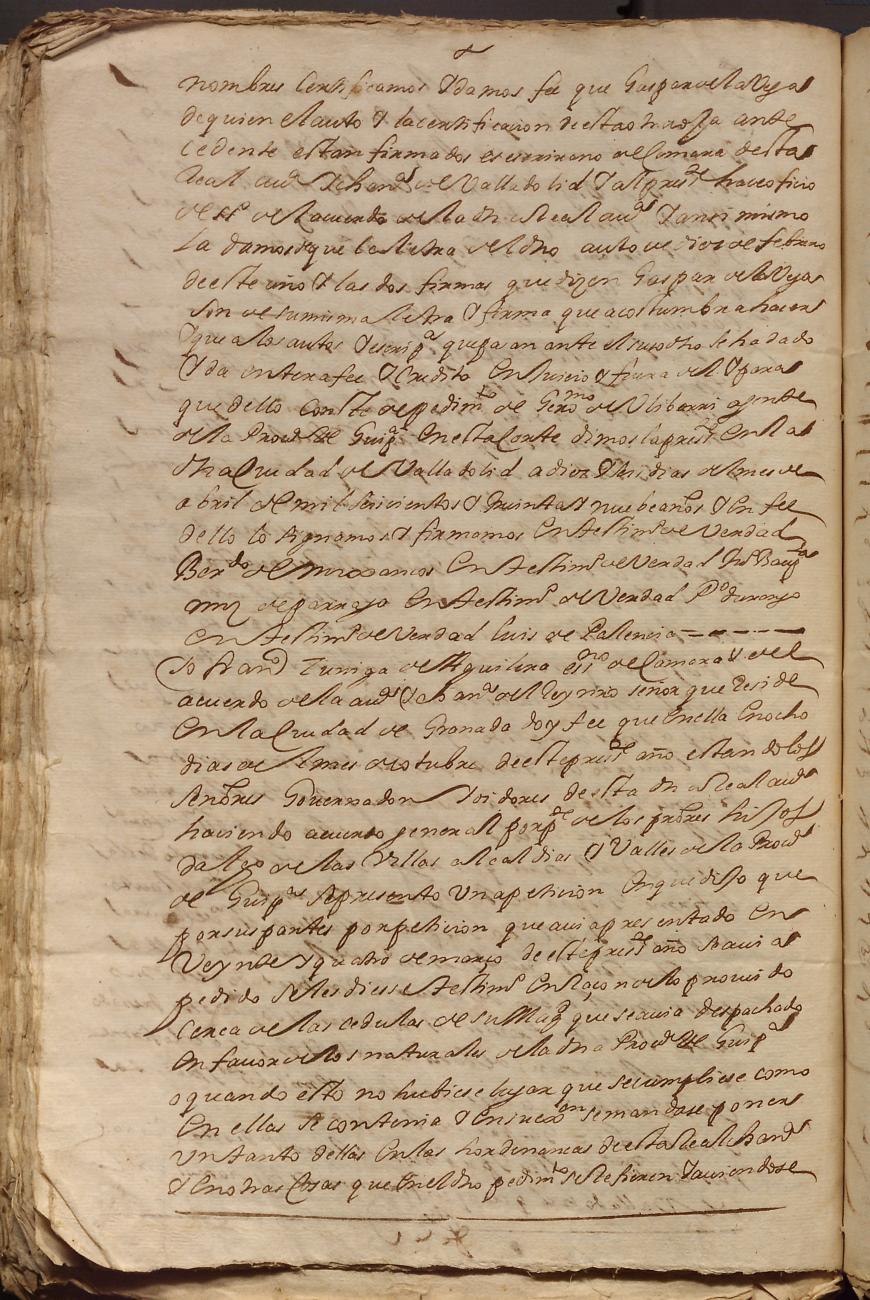 nombres Certificamos Y damos fee que Gaspar de la Vega
de quien el auto Y la certificacion desta otra oja ante
cedente estan firmados es escrivano de Camara desta
Real aud^a Y chan^a de Valladolid Y al pres^te hace oficio
de ss^o del acuerdo de la dha Real aud^a Y ansi mismo
la damos de que la letra del dho auto de diez de febrero
deeste año Y las dos firmas que dizen Gaspar de la Vega
son de su misma letra Y firma que acostumbra hacer
Y que a los autos Y escrip^as que pasan ante el susodho se ha dado
Y da entera fee Y Credito En Juicio Y fuera del Y para
que dello Conste de pedim^to de Gero^mo de Ulibarri agente
de la Prov^a de Guip^a En esta Corte dimos la pres^te En la
dha Ciudad de Valladolid a diez Y seis dias del mes de
abril de mil seiscientos Y treinta Y nuebe años Y En fee
dello lo signamos Y firmamos En testim^o de Verdad
Ber^do de En testim^o de Verdad Ju^o Baup^ta
mrz de parrago En testim^o de Verdad P^o durango
En testim^o de Verdad Luis de Palencia
Yo fran^co Zuniga de Aguilera ess^no de Camara Y del
acuerdo de la aud^a Y chan^a del Rey nro señor que Reside
En la Ciudad de Granada doy fee que En ella En ocho
dias del mes de otubre deeste pres^te año estando los
Señores Governador Y oidores desta dha Real aud^a
haciendo acuerdo general por p^te de los pobres hijos
dalgo de las Villas alcaldias Y Valles de la Prov^a
de Guip^a Se presento Una peticion En que dijo que
por sus partes por peticion que avia presentado En
Veynte Y quatro de março deeste pres^te año se avia
pedido se les diese testim^o En Raçon de lo proveido
Cerca de las cedulas de su Mag^d que se avia despachado
En favor de los naturales de la dha Prov^a de Guip^a
o quando esto no hubiese lugar que se cumpliese como
En ellas se contenia Y En su exe^on se mandase poner
Un tanto dellas En las hordenanças deesta Real chan^a
Y En otras Cosas que En el dho pedim^to se Refieren Y aviendose